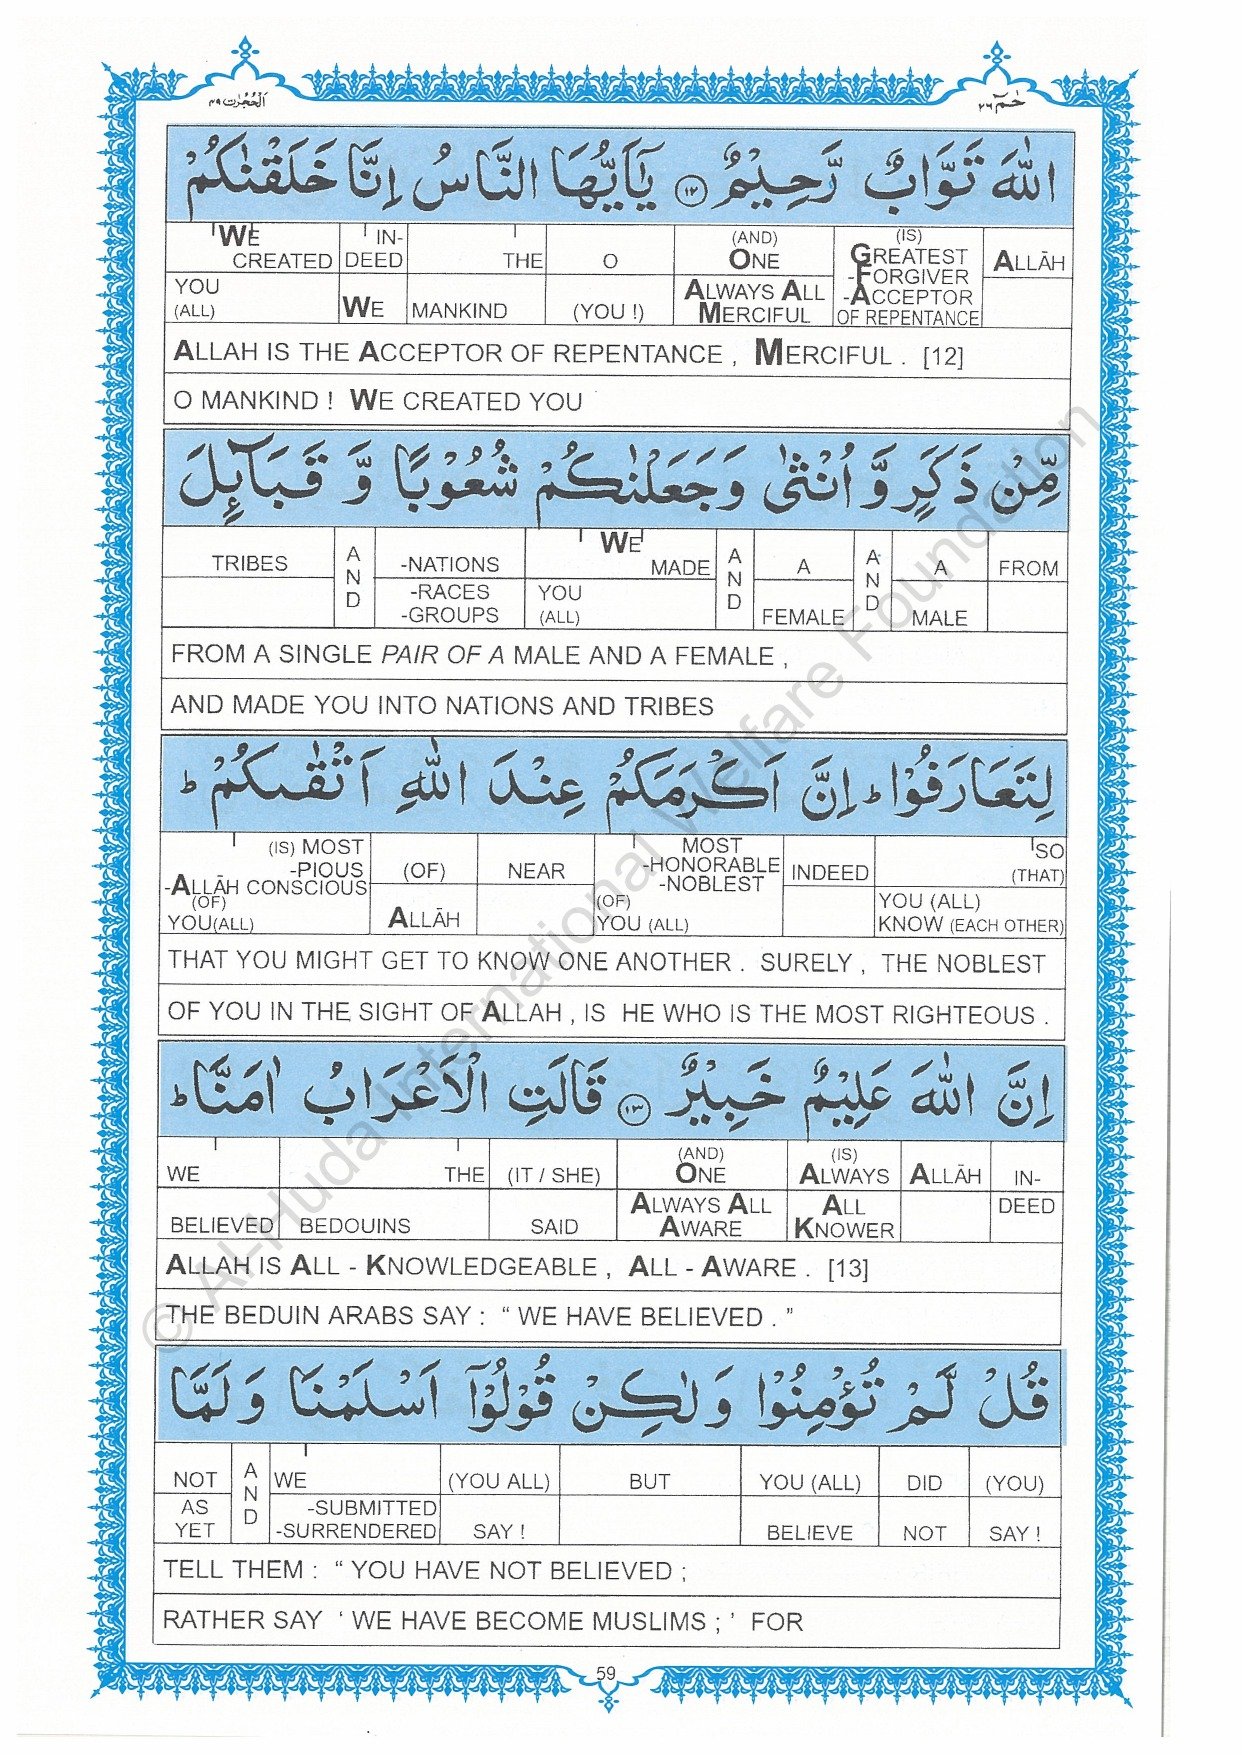 الحُجُرٰت ٤٩
حٰمٓ ٢٦
اللّٰهَ تَوَّابٌ رَّحِيْمٌ ﴿١٢﴾ يٰٓاَيُّهَا النَّاسُ اِنَّا خَلَقْنٰكُمْ
WE CREATED | IN-DEED | THE | O | (AND) ONE | (IS) GREATEST -FORGIVER | ALLĀH
YOU (ALL) | WE | MANKIND | (YOU !) | ALWAYS ALL MERCIFUL | -ACCEPTOR OF REPENTANCE
ALLAH IS THE ACCEPTOR OF REPENTANCE , MERCIFUL . [12]
O MANKIND ! WE CREATED YOU
مِّنْ ذَكَرٍ وَّ اُنْثٰى وَجَعَلْنٰكُمْ شُعُوْبًا وَّ قَبَآئِلَ
TRIBES | AND | -NATIONS | WE MADE | AND | A | AND | A | FROM
-RACES -GROUPS | YOU (ALL) | FEMALE | MALE
FROM A SINGLE PAIR OF A MALE AND A FEMALE ,
AND MADE YOU INTO NATIONS AND TRIBES
لِتَعَارَفُوْا ؕ اِنَّ اَكْرَمَكُمْ عِنْدَ اللّٰهِ اَتْقٰىكُمْ ؕ
(IS) MOST -PIOUS | (OF) | NEAR | MOST -HONORABLE -NOBLEST | INDEED | SO (THAT)
-ALLĀH CONSCIOUS (OF) YOU(ALL) | ALLĀH | (OF) YOU (ALL) | YOU (ALL) KNOW (EACH OTHER)
THAT YOU MIGHT GET TO KNOW ONE ANOTHER . SURELY , THE NOBLEST
OF YOU IN THE SIGHT OF ALLAH , IS HE WHO IS THE MOST RIGHTEOUS .
اِنَّ اللّٰهَ عَلِيْمٌ خَبِيْرٌ ﴿١٣﴾ قَالَتِ الْاَعْرَابُ اٰمَنَّا ؕ
WE | THE | (IT / SHE) | (AND) ONE | (IS) ALWAYS | ALLĀH | IN-
BELIEVED | BEDOUINS | SAID | ALWAYS ALL AWARE | ALL KNOWER | DEED
ALLAH IS ALL - KNOWLEDGEABLE , ALL - AWARE . [13]
THE BEDUIN ARABS SAY : “ WE HAVE BELIEVED . ”
قُلْ لَّمْ تُؤْمِنُوْا وَلٰكِنْ قُوْلُوْٓا اَسْلَمْنَا وَلَمَّا
NOT | AND | WE | (YOU ALL) | BUT | YOU (ALL) | DID | (YOU)
AS YET | -SUBMITTED -SURRENDERED | SAY ! | BELIEVE | NOT | SAY !
TELL THEM : “ YOU HAVE NOT BELIEVED ;
RATHER SAY ‘ WE HAVE BECOME MUSLIMS ; ’ FOR
59
© Al-Huda International Welfare Foundation